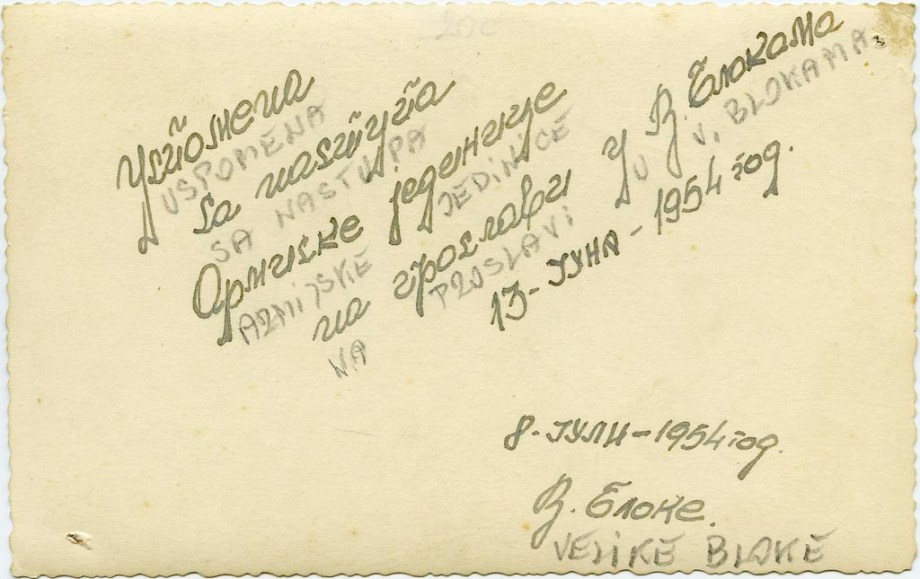 Успомена
USPOMENA
са наступа
SA NASTUPA
Армиске јединице
ARMIJSKE JEDINICE
на прослави у В. Блокама
NA PROSLAVI U V. BLOKAMA
13-ЈУНА-1954 год.
8-ЈУЛИ-1954 год.
В. Блоке.
VELIKE BLOKE